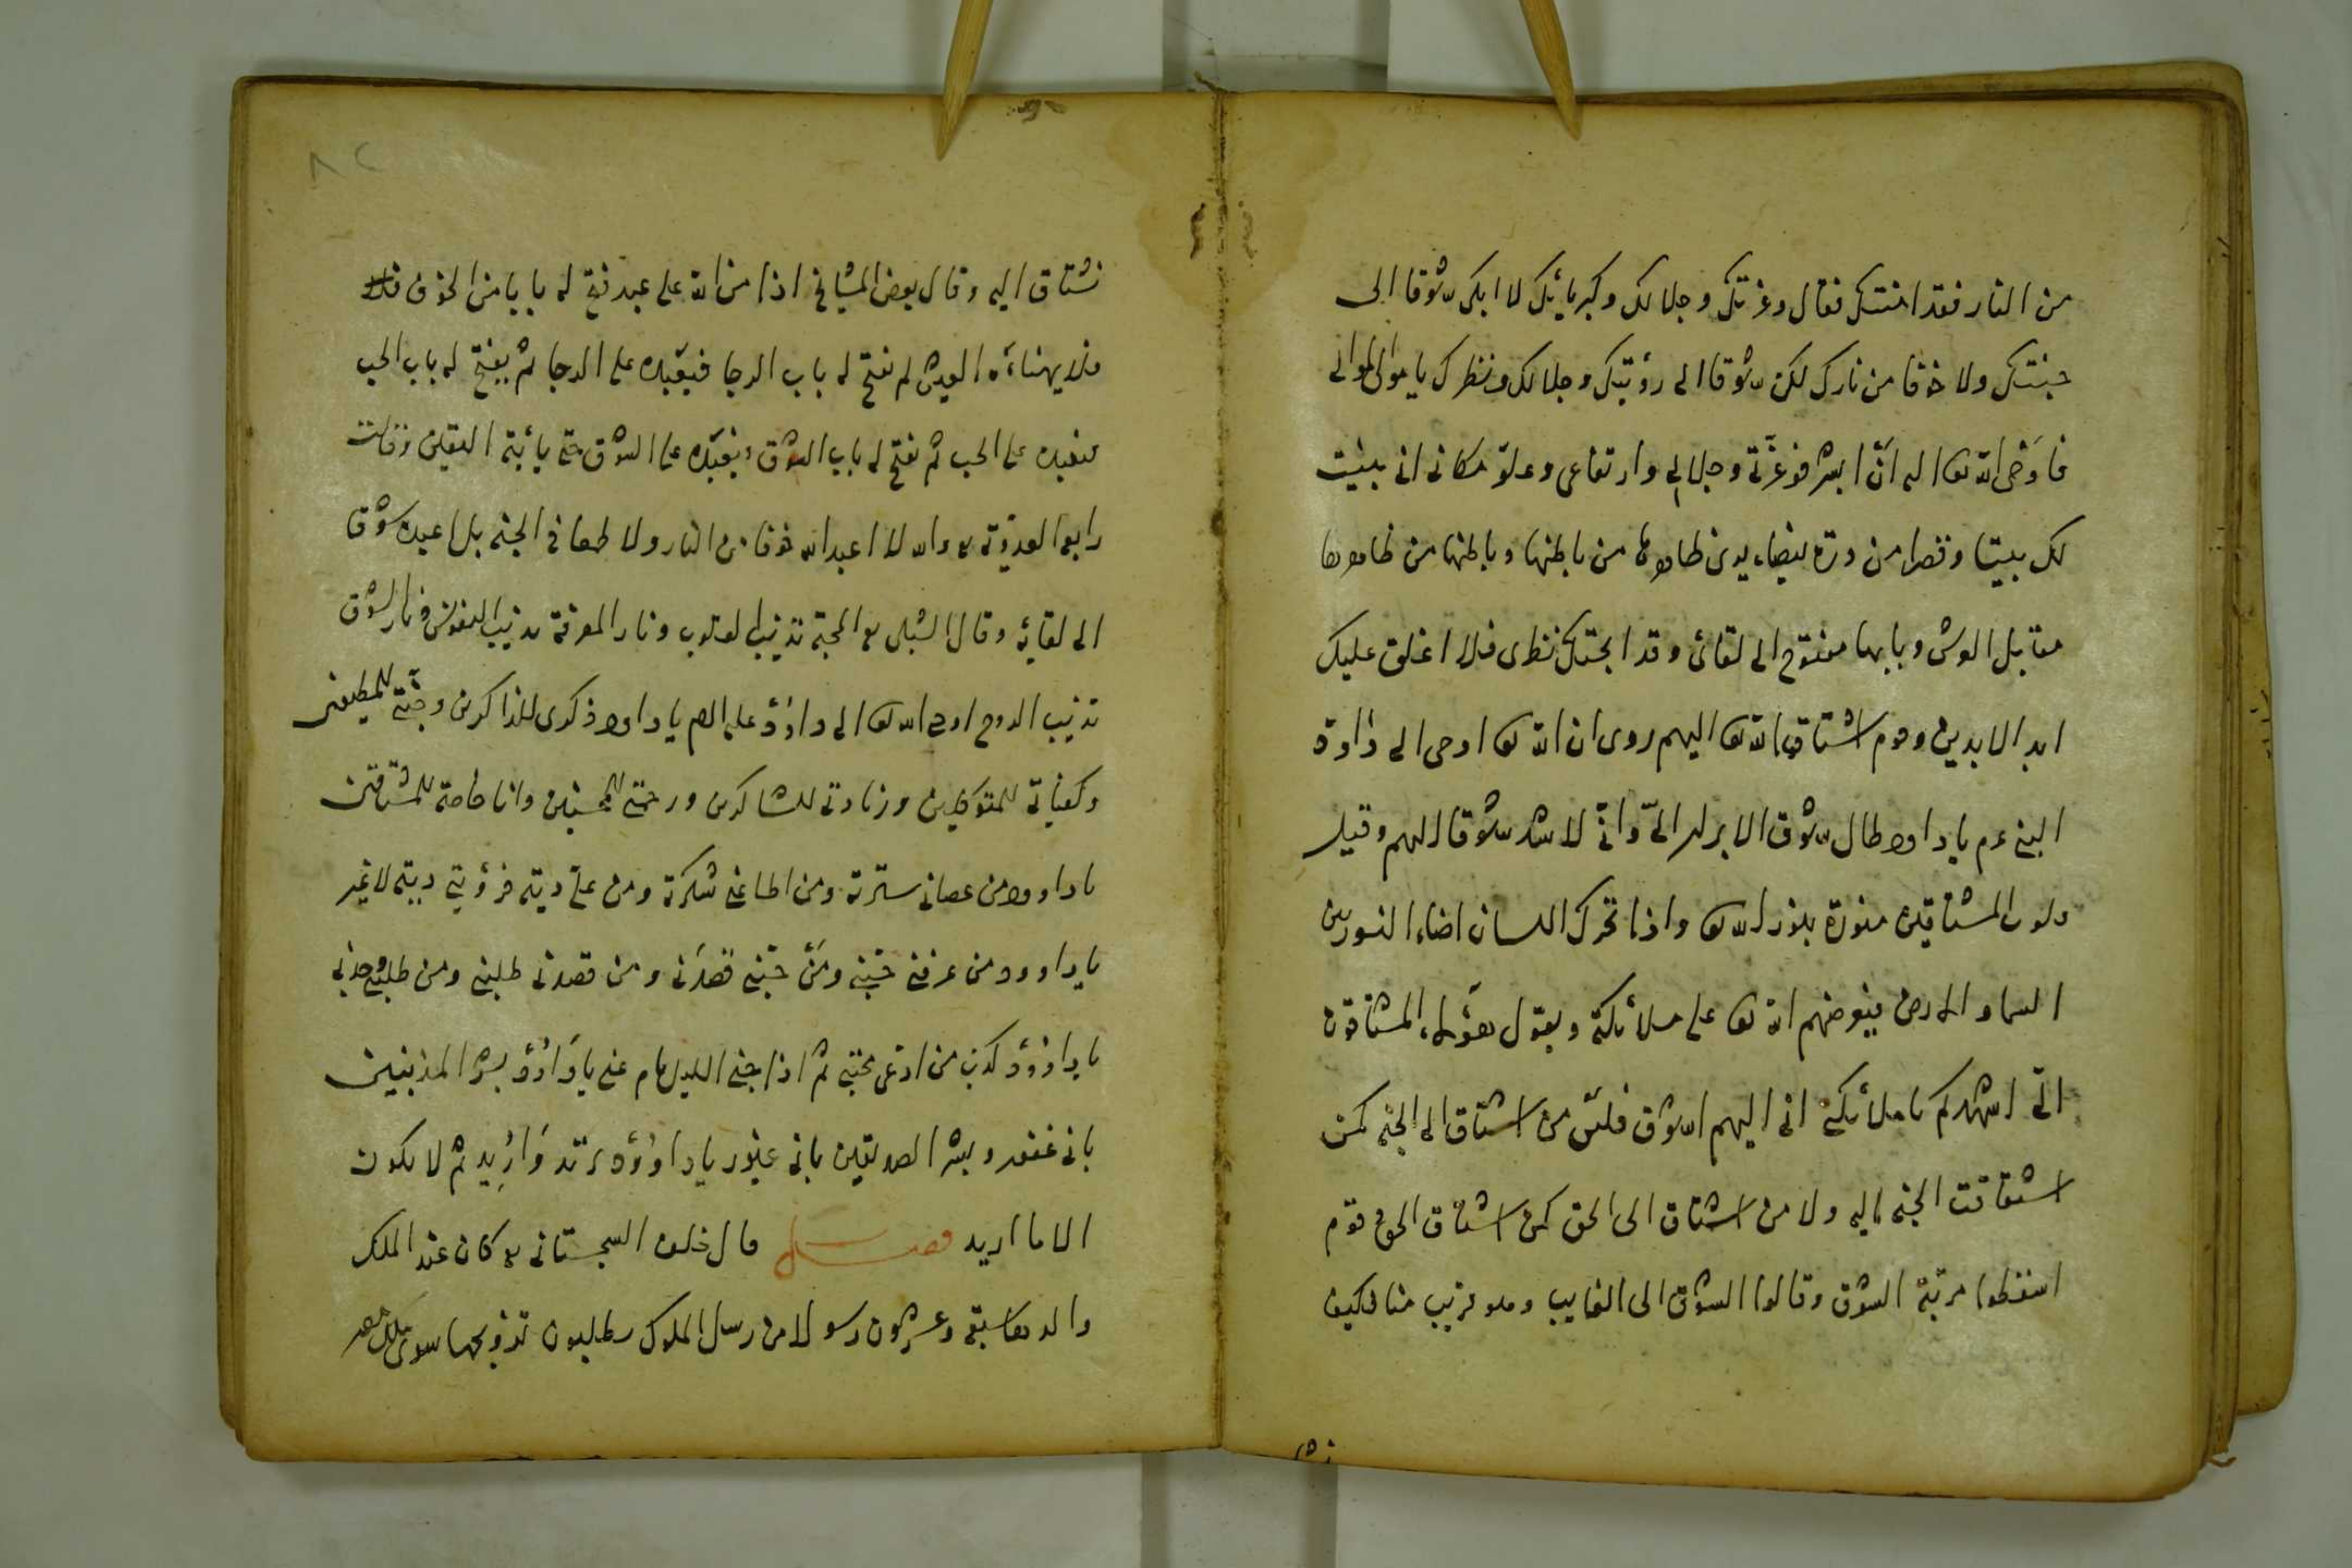 من النار فقد امنتك فقال وعزتك وجلالك وكبريائك لا ابكى شوقا الى
جنتك ولا خوفا من نارك لكن شوقا الى رؤيتك وجلالك ونظرك يا مولى الموالى
فاوحى الله تعا اليه ان ابشر فوعزتى وجلالى وارتفاعى وعلو مكانى انى بنيت
لك بيتا وقصرا من درة بيضاء يرى ظاهرها من باطنها وباطنها من ظاهرها
مقابل العرش وبابها مفتوح الى لقائى وقد ابحتك نظرى فلا اغلق عليك
ابد الابدين وقوم اشتاق الله تعا اليهم روى ان الله تعا اوحى الى داود
النبى عم يا داود طال شوق الابرار الىّ وانّى لاشد شوقا اليهم وقيل
قلوب المشتاقين منورة بنور الله تعا واذا تحرك اللسان اضاء النور بين
السماء والارض فيعرضهم الله تعا على ملائكته ويقول هؤلاء المشتاقون
الىّ اشهدكم يا ملائكتى انى اليهم اشوق فليس من اشتاق الى الجنه كمن
اشتاقت الجنه اليه ولا من اشتاق الى الحق كمن اشتاق الحق قوم
اسقطوا مرتبة الشوق وقالوا الشوق الى الغايب وهو قريب منا فكيف
نشتاق اليه وقال بعض المشايخ اذا من الله على عبد فتح له بابا من الخوف
فلا يهناءه العيش ثم يفتح له باب الرجا فيقبله على الرجا ثم يفتح له باب الحب
فيقبله على الحب ثم يفتح له باب الشوق ويقبله على الشوق حتى ياتيه اليقين وقالت
رابعه العدويه والله لا اعبد الله خوفا من النار ولا طمعا فى الجنه بل اعبده شوقا
الى لقايه وقال الشبلى المحبة تذيب القلوب ونار المعرفة تذيب النفوس ونار الشوق
تذيب الروح اوحى الله تعا الى داود عليه السلام يا داود ذكرى للذاكرين وجنتى للمطيعين
وكفايتى للمتوكلين وزيادتى للشاكرين ورحمتى للمحسنين وانا خاصة للمشتاقين
يا داود من عصانى سترته ومن اطاعنى شكرته ومن ديته فرؤيتى ديته لا غير
يا داود من عرفنى حبنى ومن حبنى قصدنى ومن قصدنى طلبنى ومن طلبنى وجدنى
يا داود كذب من ادعى محبتى ثم اذا جنه الليل نام عنى يا داود بشر المذنبين
بانى غفور وبشر الصديقين بانى غيور يا داود تريد واريد ثم لا يكون
الا ما اريد فصل قال خلف السجستانى كان عند الملك
والد سبعة وعشرون رسولا من رسل الملوك يطلبون تزويجها سوى
نشتا